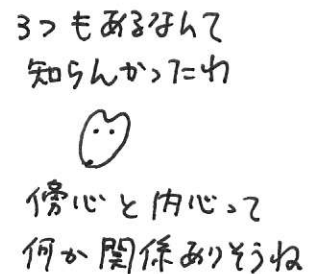 3つもあるなんて
知らんかったわ
傍心と内心って
何か関係ありそうね